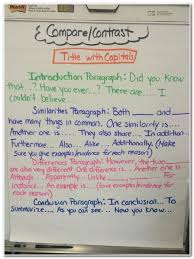 Compare/Contrast
Title with Capitals
Introduction Paragraph: Did you know
that...? Have you ever...? There are.... I
couldn't believe...
Similarities Paragraph: Both ___ and ___
have many things in common. One similarity is...
Another one is... They also share... In addition
Furthermore... Also... Alike... Additionally. (Make
Sure you give examples/evidence for each reason)
Differences Paragraph: However, the two
are also very different. One difference is... Another is...
Although... Apparently... Unlike ... For
instance... An example is... (Give examples/evidence for
each reason)
Conclusion Paragraph: In conclusion... To
Summarize.... As you can see... Now you know...